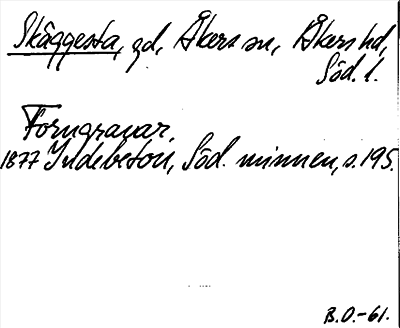 Skäggesta, gd, Åkers sn, Åkers hd,
Söd. l.
Forngravar.
1877 Indebetou, Söd. minnen, s. 195.
B.O.-61.